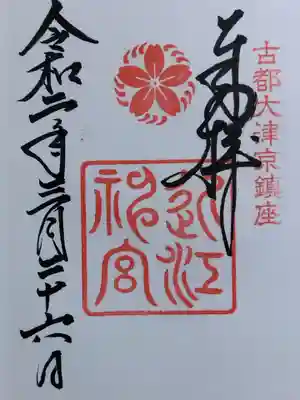 古都大津京鎮座
奉拝
近江神宮
令和二年三月二十六日